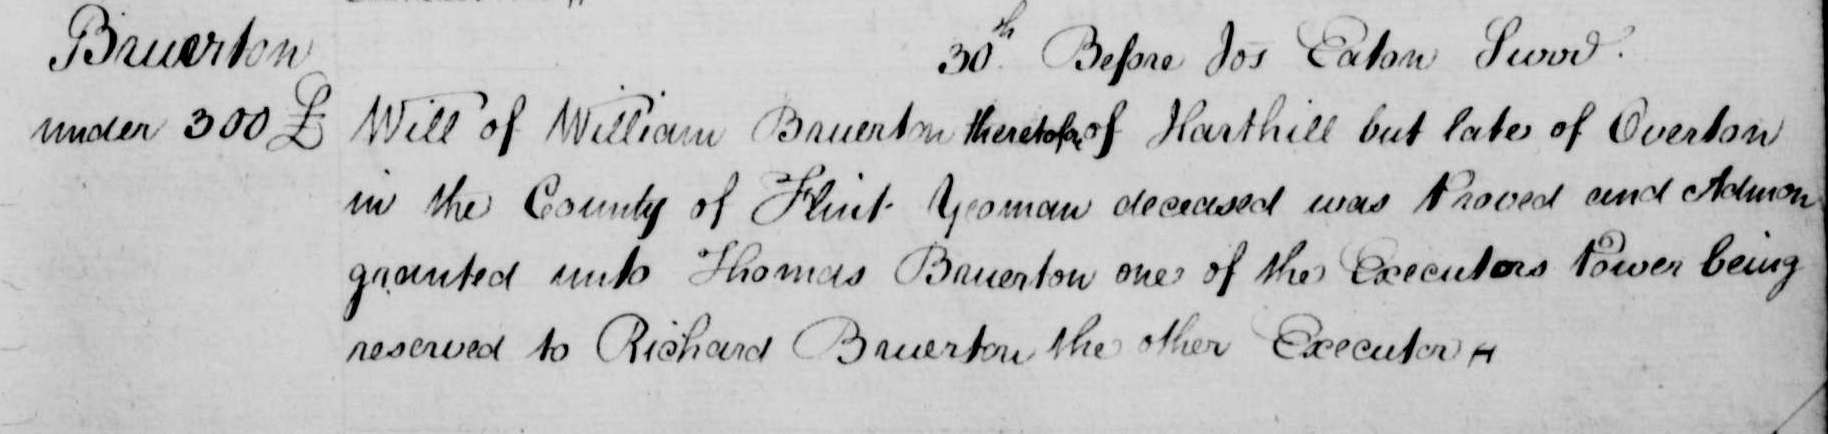 Bruerton
30th. Before Jos Eaton Surr.
under 300 £ Will of William Bruerton theretofore of Harthill but late of Overton
in the County of Flint Yeoman deceased was Proved and Admon
granted unto Thomas Bruerton one of the Executors Power being
reserved to Richard Bruerton the other Executor